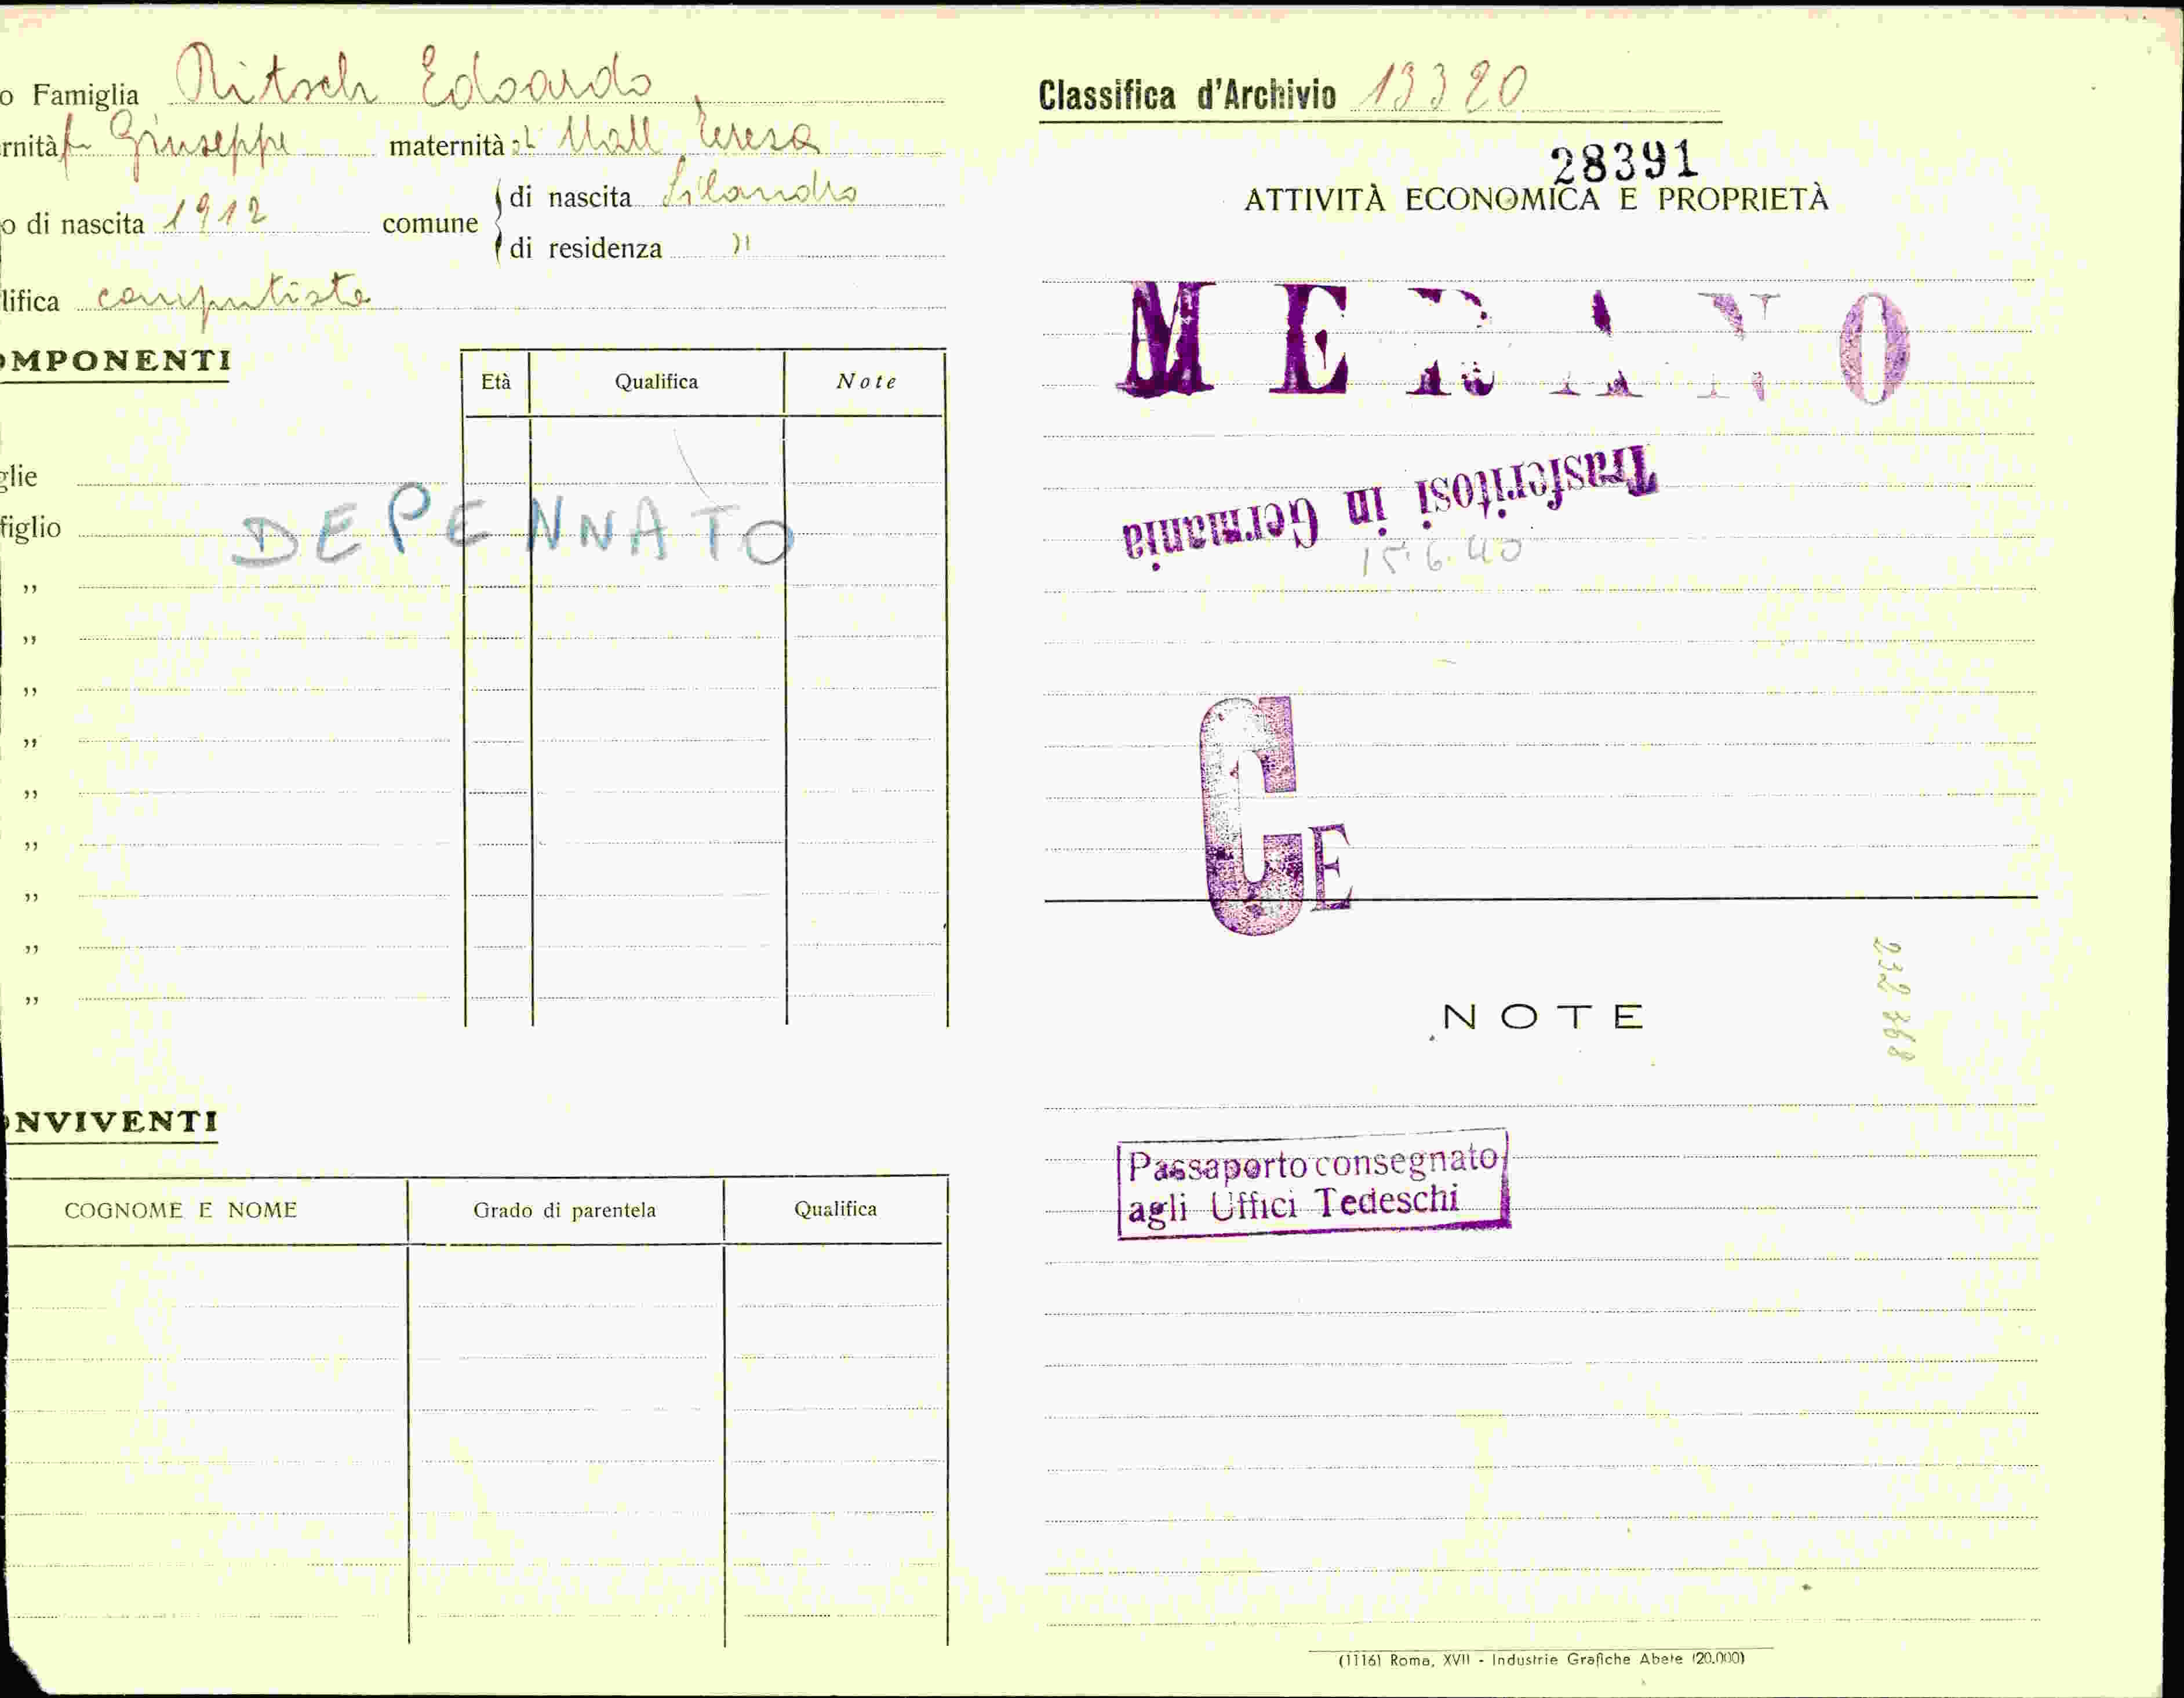 o Famiglia Ritsch Edoardo
rnità fu Giuseppe maternità di Mall Teresa
o di nascita 1912 comune di nascita Silandro
di residenza "
lifica computista
OMPONENTI
Età Qualifica Note
glie
figlio
DEPENNATO
"
"
"
"
"
"
"
"
"
ONVIVENTI
COGNOME E NOME Grado di parentela Qualifica
Classifica d'Archivio 13320
28391
ATTIVITÀ ECONOMICA E PROPRIETÀ
MERANO
Trasferitosi in Germania
15.6.40
CE
NOTE
232868
Passaporto consegnato
agli Uffici Tedeschi
(1116) Roma, XVII - Industrie Grafiche Abete (20.000)